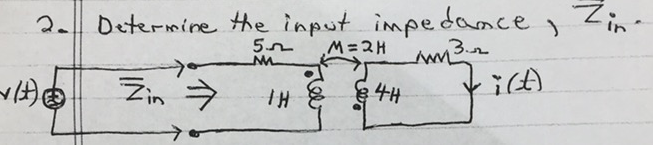 2. Determine the input impedance, Z̅in.
5Ω M=2H 3Ω
v(t) Z̅in ⇒ 1H 4H i(t)